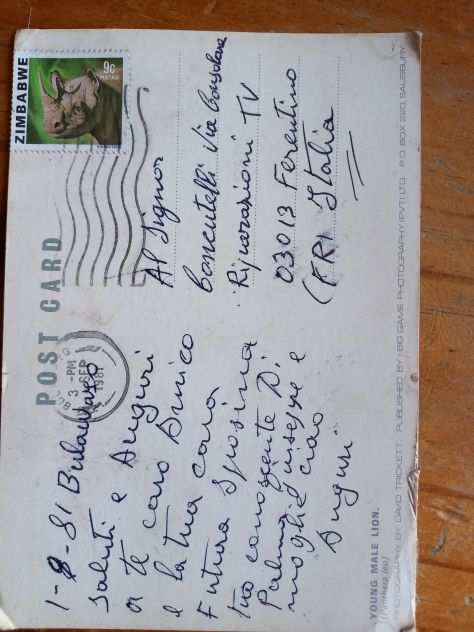 POST CARD
ZIMBABWE
9c
3 - PM
SEP
1981
1-8-81 Bulawayo
Saluti e Auguri
a te caro
e la tua cara
Futura Sposina
tuo conoscente Di
Palma Giuseppe e
moglie ciao
Auguri
Al Signor
Via Consolare
Riparazioni TV
03013 Ferentino
(FR) Italia
YOUNG MALE LION.
PHOTOGRAPHY BY DAVID TRICKETT. PUBLISHED BY BIG GAME PHOTOGRAPHY (PVT) LTD. P.O. BOX 220, SALISBURY